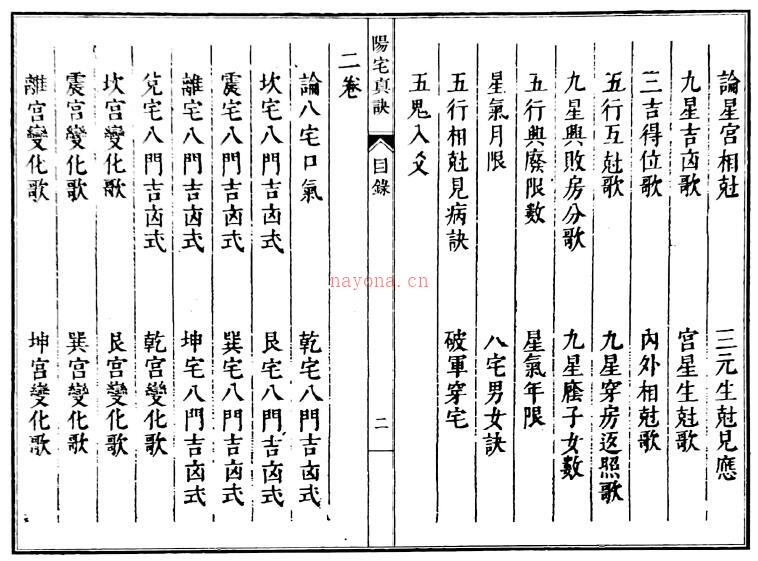 論星宫相尅　三元生尅見應
九星吉㐫歌　宫星生尅歌
三吉得位歌　內外相尅歌
五行互尅歌　九星穿房返照歌
九星興敗房分歌　九星廕子女數
五行興廢限數　星氣年限
星氣月限　八宅男女訣
五行相尅見病訣　破軍穿宅
五鬼入爻
陽宅真訣　目錄　二
二卷
論八宅口氣　乾宅八門吉㐫式
坎宅八門吉㐫式　艮宅八門吉㐫式
震宅八門吉㐫式　巽宅八門吉㐫式
離宅八門吉㐫式　坤宅八門吉㐫式
兌宅八門吉㐫式　乾宫變化歌
坎宫變化歌　艮宫變化歌
震宫變化歌　巽宫變化歌
離宫變化歌　坤宫變化歌
nayona.cn